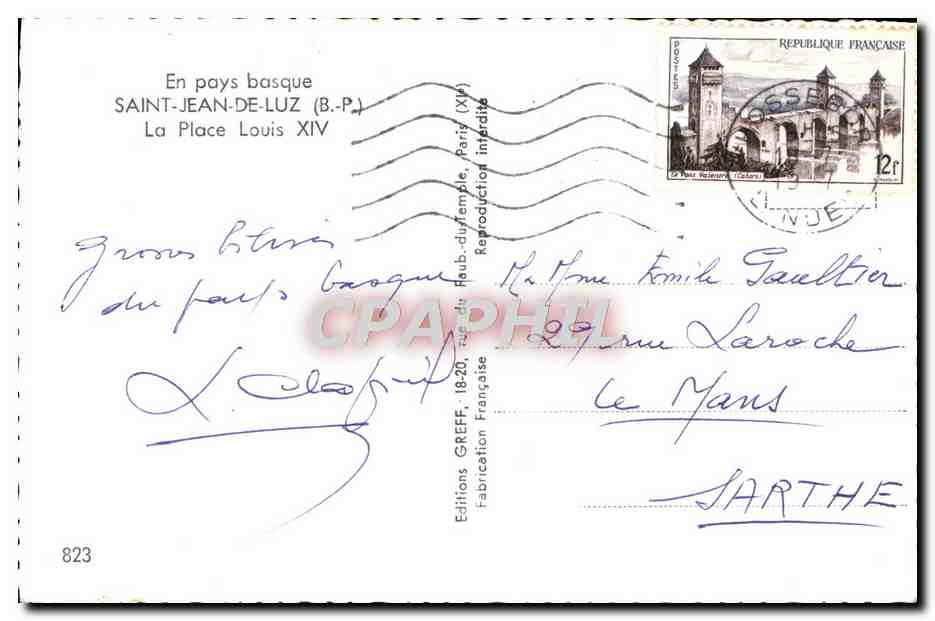 En pays basque
SAINT-JEAN-DE-LUZ (B.-P.)
La Place Louis XIV
POSTES
REPUBLIQUE FRANÇAISE
Le Pont Valentré (Cahors)
12f
Grosses bises
du pays basque
L.
Editions GREFF, - 18-20, rue du Faub.-du-Temple, Paris (XIe)
Fabrication Française Reproduction interdite
M. Mme Emile Gaultier
29 rue Laroche
Le Mans
SARTHE
823
CPAPHIL